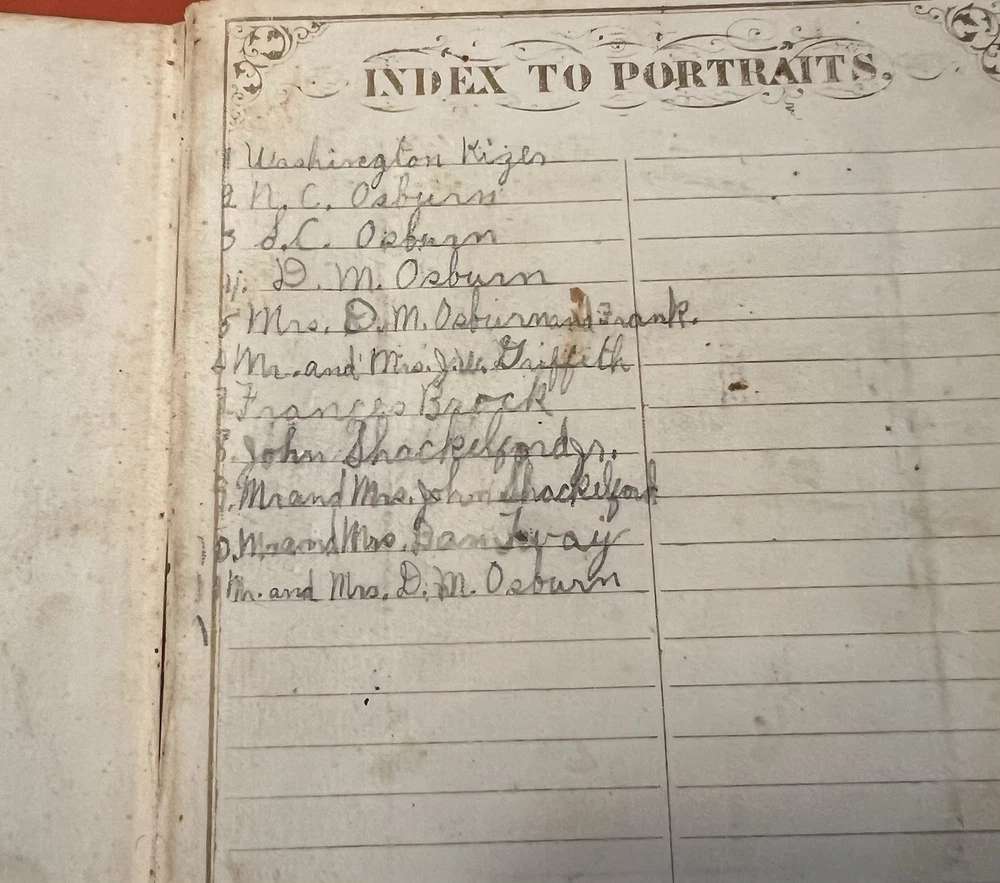 INDEX TO PORTRAITS.
1 Washington Kizer
2 N. C. Osburn
3 S. C. Osburn
4. D. M. Osburn
5 Mrs. D. M. Osburn and Frank.
Mr. and Mrs. Griffeth
7 Frances Brock
8. John Shackelford Jr.
9. Mr and Mrs. John Shackelford
10. Mr and Mrs.
11 Mr. and Mrs. D. M. Osburn